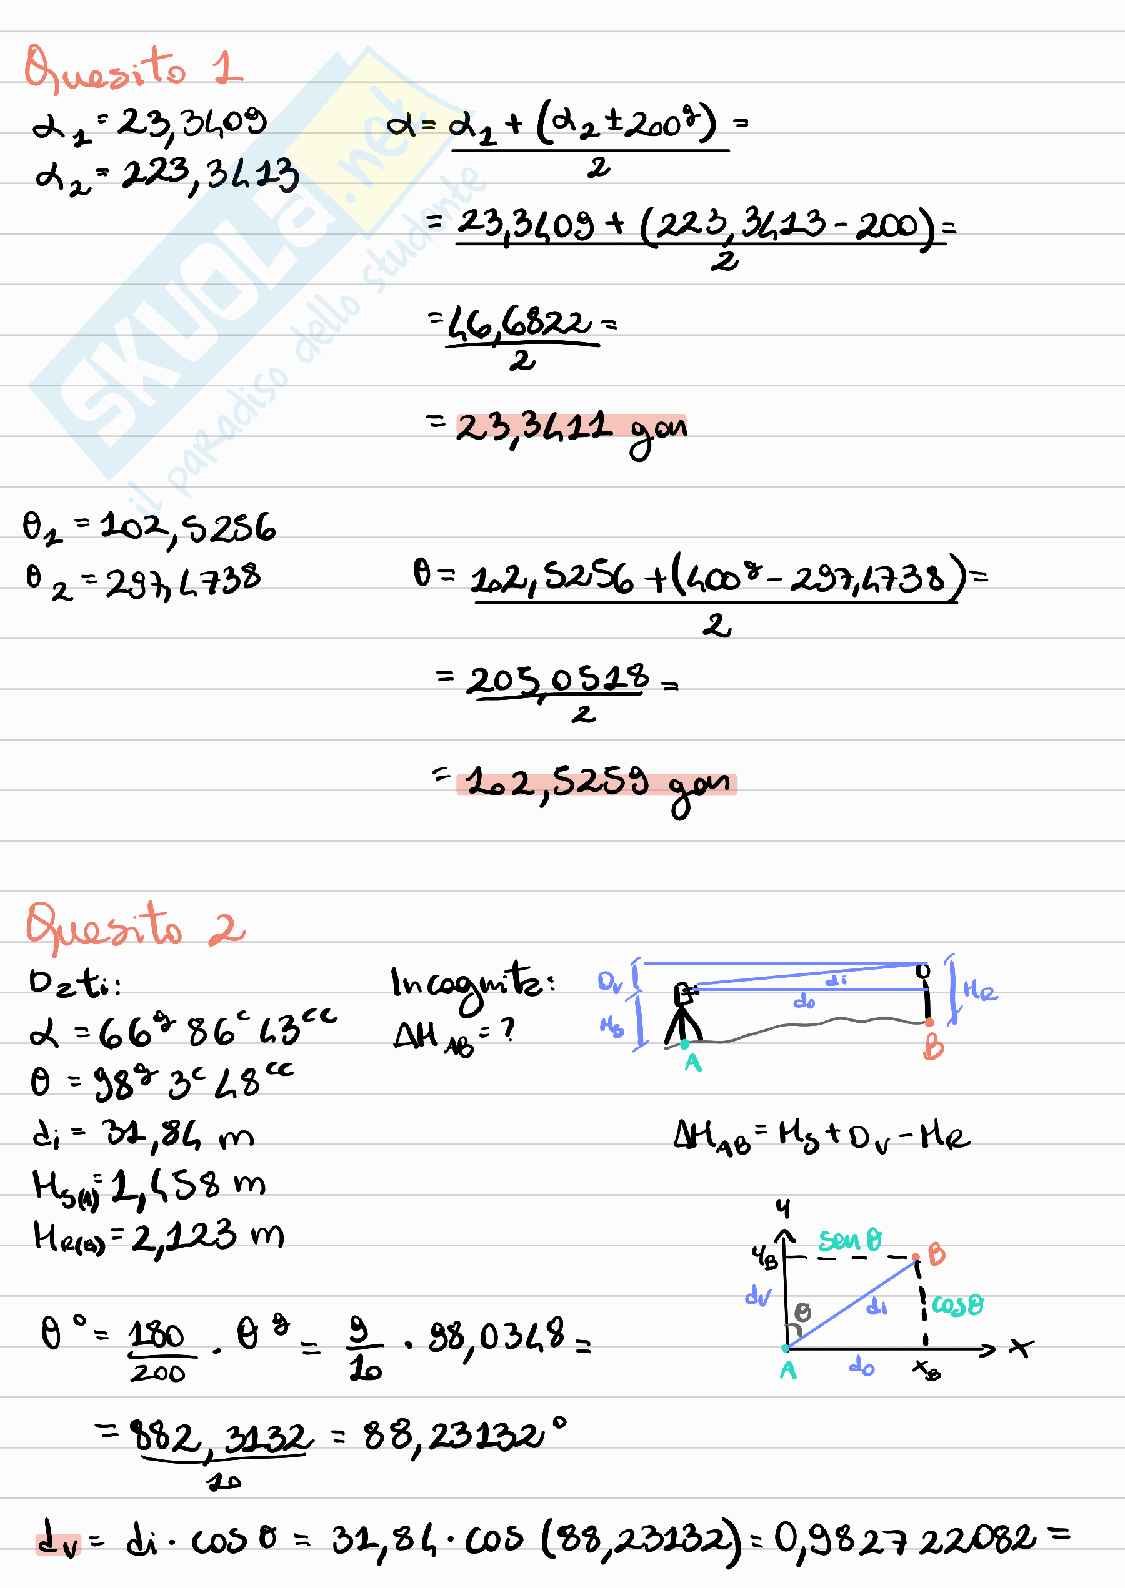 Quesito 1
α₁ = 23,3409
α₂ = 223,3413
α = α₁ + (α₂ ± 200ᵍ) / 2 =
= 23,3409 + (223,3413 - 200) / 2 =
= 46,6822 / 2 =
= 23,3411 gon
θ₁ = 102,5256
θ₂ = 297,4738
θ = 102,5256 + (400ᵍ - 297,4738) / 2 =
= 205,0518 / 2 =
= 102,5259 gon
SKUOLA.net
il paradiso dello studente
Quesito 2
Dati:
α = 66ᵍ 86ᶜ 43ᶜᶜ
θ = 98ᵍ 3ᶜ 48ᶜᶜ
di = 31,84 m
H_S(A) = 1,458 m
H_R(B) = 2,123 m
Incognite:
ΔH_AB = ?
Dv
Hs
di
do
HR
A
B
ΔH_AB = H_S + D_V - H_R
y
y_B
sen θ
B
dv
θ
di
cos θ
A
do
x_B
x
θ° = 180/200 · θᵍ = 9/10 · 98,0348 =
= 882,3132 / 10 = 88,23132°
dv = di · cos θ = 31,84 · cos (88,23132) = 0,982722082 =